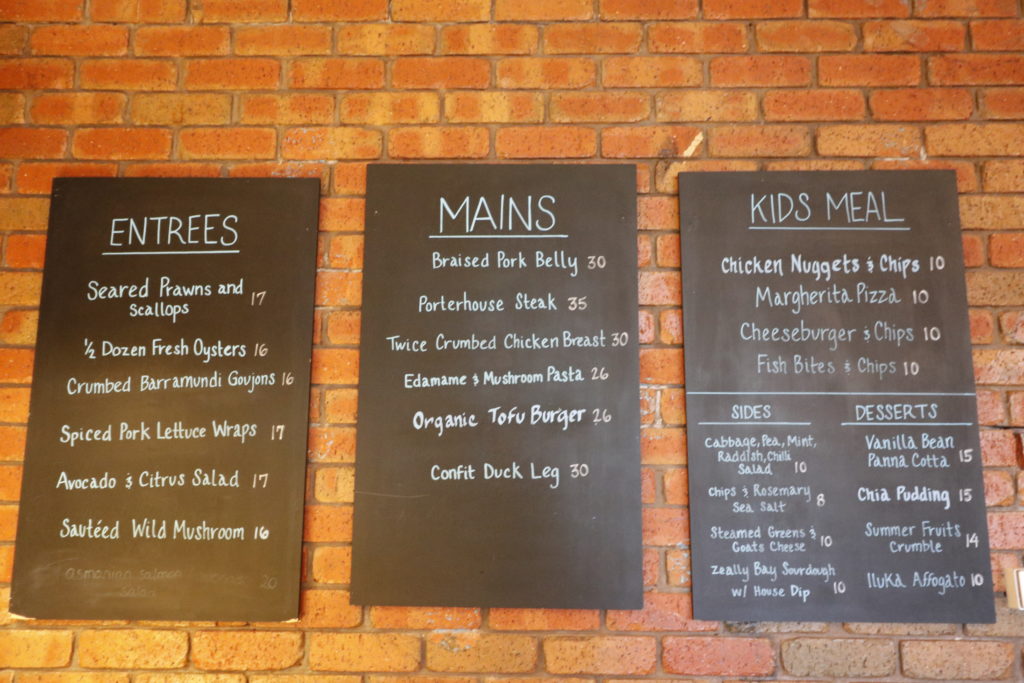 ENTREES
Seared Prawns and
scallops 17
½ Dozen Fresh Oysters 16
Crumbed Barramundi Goujons 16
Spiced Pork Lettuce Wraps 17
Avocado & Citrus Salad 17
Sautéed Wild Mushroom 16
asmanian salmon
salad 20
MAINS
Braised Pork Belly 30
Porterhouse Steak 35
Twice Crumbed Chicken Breast 30
Edamame & Mushroom Pasta 26
Organic Tofu Burger 26
Confit Duck Leg 30
KIDS MEAL
Chicken Nuggets & Chips 10
Margherita Pizza 10
Cheeseburger & Chips 10
Fish Bites & Chips 10
SIDES
Cabbage, Pea, Mint,
Raddish, Chilli
Salad 10
Chips & Rosemary
Sea Salt 8
Steamed Greens &
Goats Cheese 10
Zeally Bay Sourdough
w/ House Dip 10
DESSERTS
Vanilla Bean
Panna Cotta 15
Chia Pudding 15
Summer Fruits
Crumble 14
Iluka Affogato 10